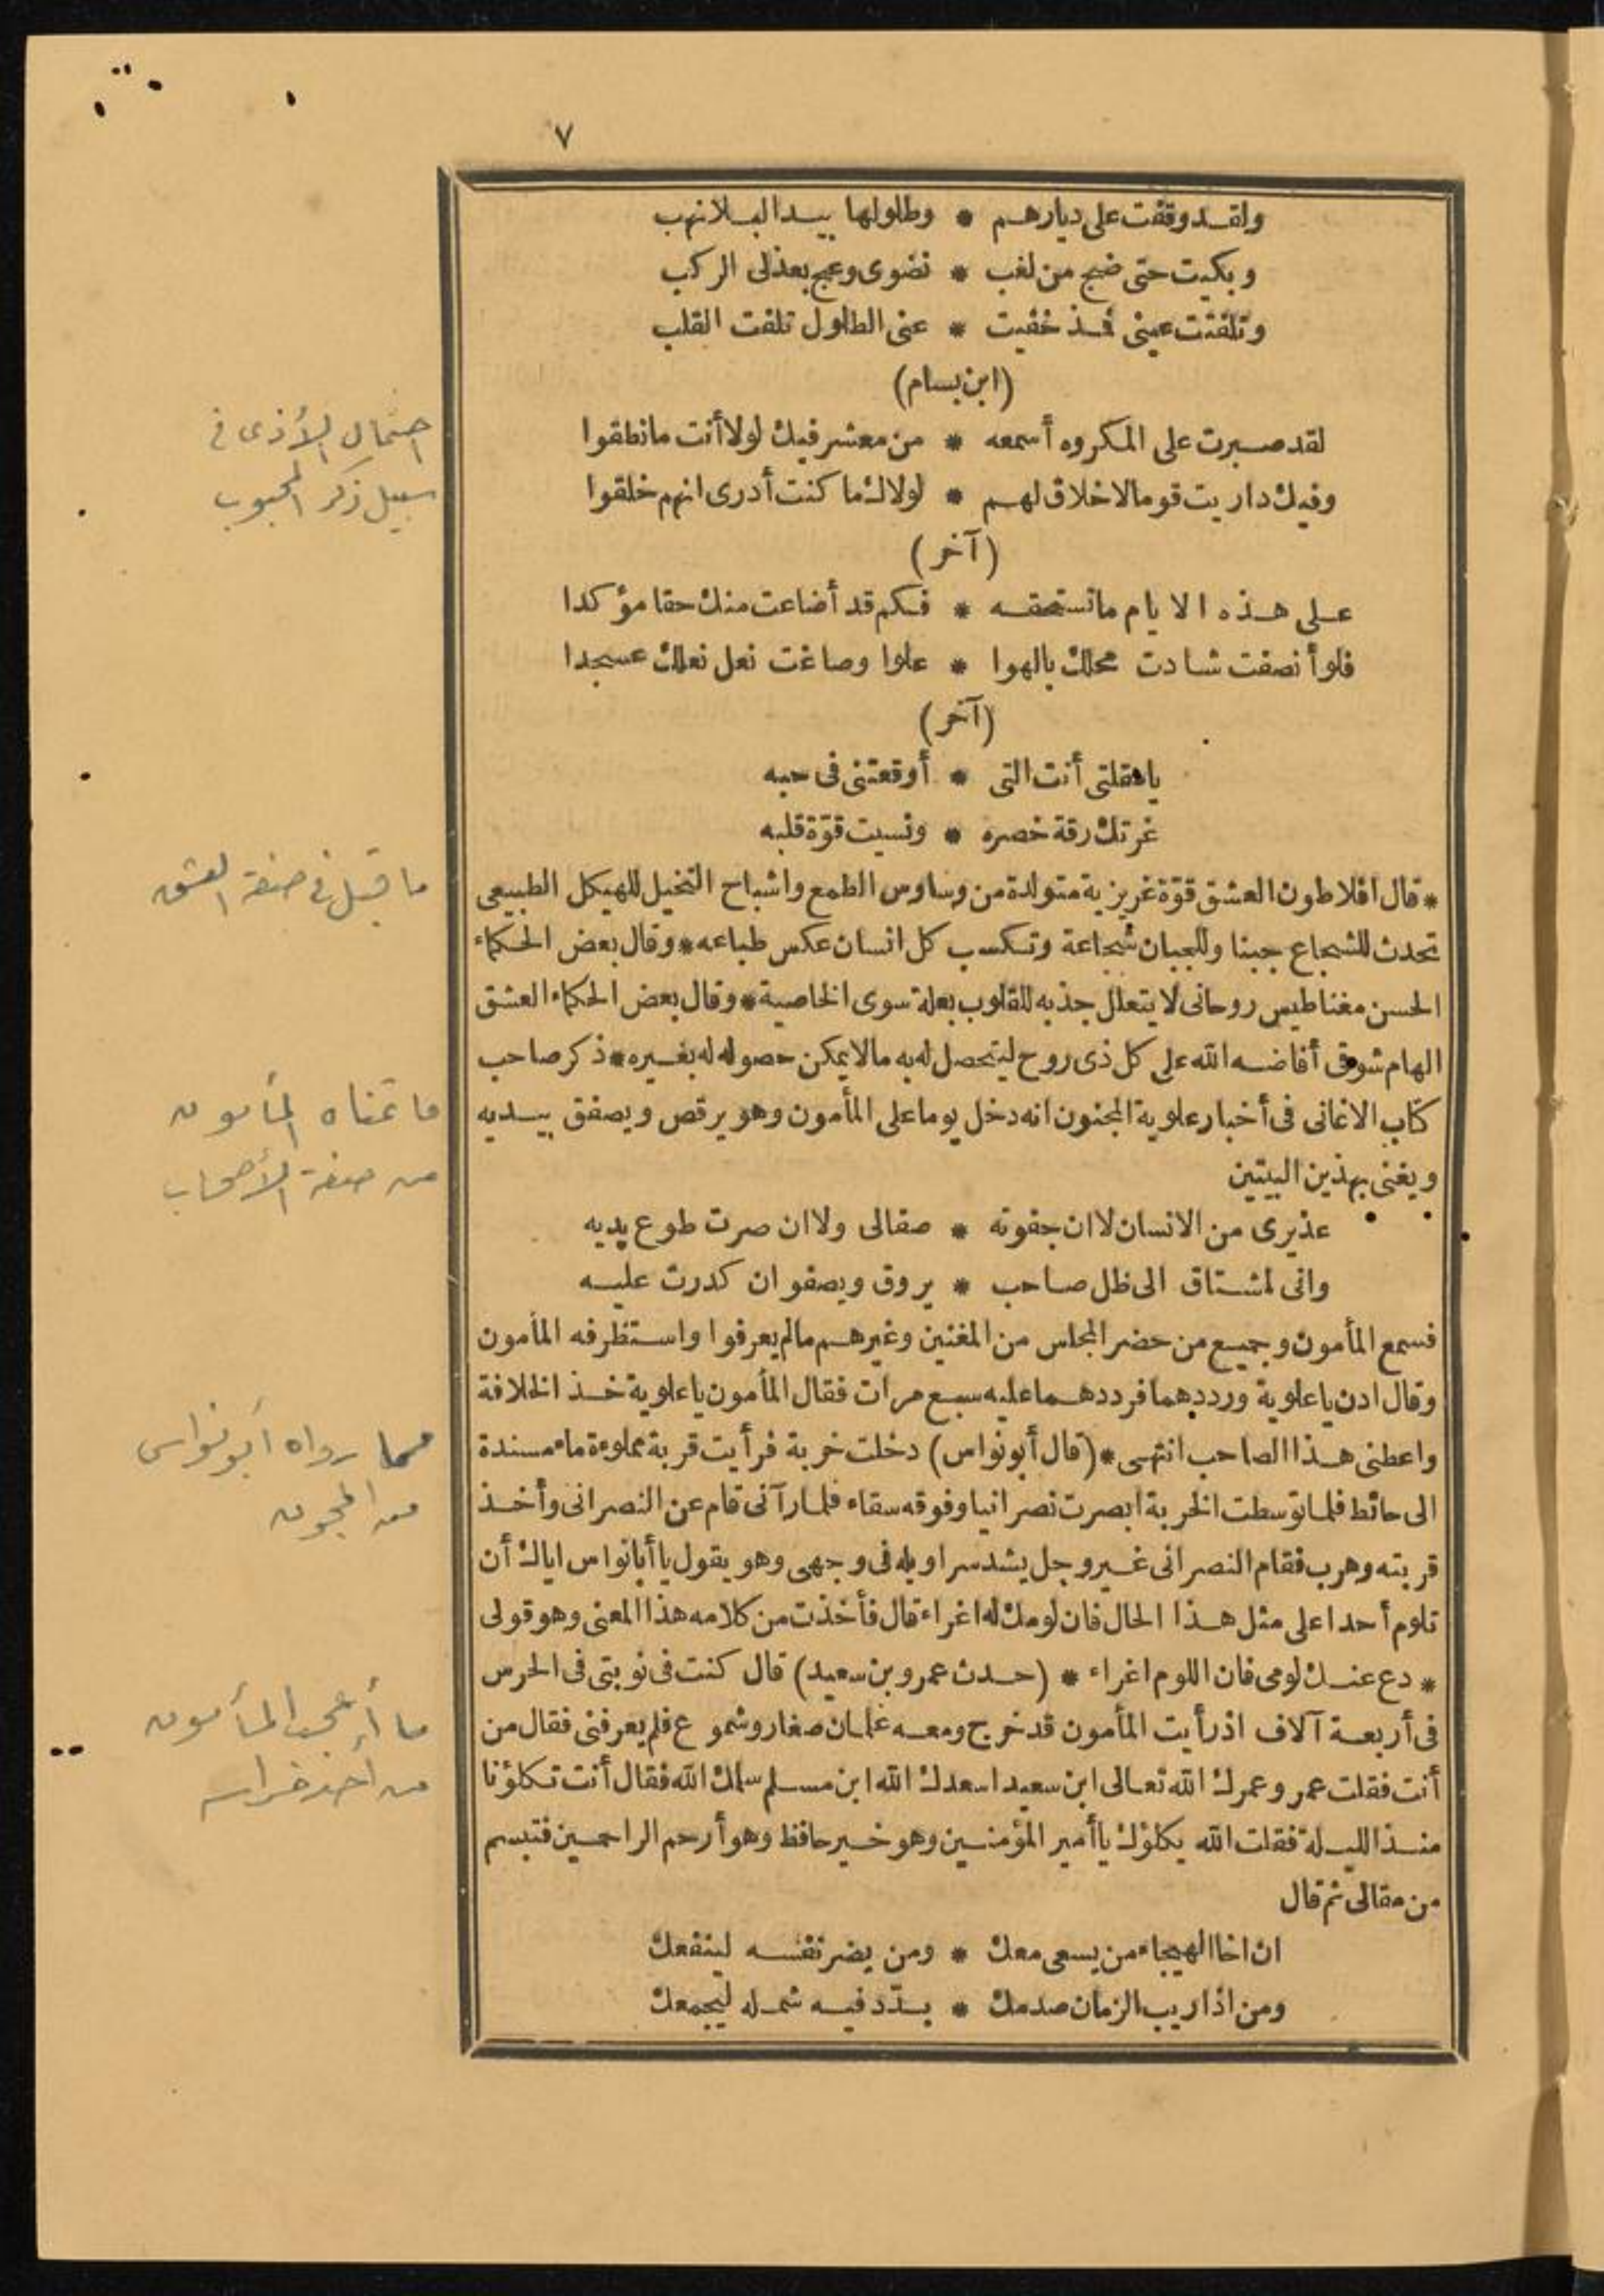 ٧
ولقد وقفت على ديارهم * وطلولها بيد البلا نهب
وبكيت حتى ضج من لغب * نضوى وعج بعذلى الركب
وتلفتت عينى فمذ خفيت * عنى الطلول تلفت القلب
(ابن بسام)
لقد صبرت على المكروه أسمعه * من معشر فيك لولا أنت ما نطقوا
وفيك داريت قوما لاخلاق لهم * لولاك ما كنت أدرى انهم خلقوا
(آخر)
على هذه الايام ما تستحقه * فكم قد أضاعت منك حقا مؤكدا
فلو أنصفت شادت محلك بالهوا * علوا وصاغت نعل نعلك عسجدا
(آخر)
يا مقلتى أنت التى * أوقعتنى فى حبه
غرتك رقة خصره * ونسيت قوّة قلبه
* قال افلاطون العشق قوّة غريزية متولدة من وساوس الطمع واشباح التخيل للهيكل الطبيعى
تحدث للشجاع جبنا وللجبان شجاعة وتكسب كل انسان عكس طباعه * وقال بعض الحكماء
الحسن مغناطيس روحانى لا يتعلل جذبه للقلوب بعلة سوى الخاصية * وقال بعض الحكماء العشق
الهام شوقى أفاضه الله على كل ذى روح ليتحصل له به مالا يمكن حصوله له بغيره * ذكر صاحب
كتاب الاغانى فى أخبار علوية المجنون انه دخل يوما على المأمون وهو يرقص ويصفق بيديه
ويغنى بهذين البيتين
عذيرى من الانسان لا ان جفوته * صفالى ولا ان صرت طوع يديه
وانى لمشتاق الى ظل صاحب * يروق ويصفو ان كدرت عليه
فسمع المأمون وجميع من حضر المجلس من المغنين وغيرهم مالم يعرفوا واستظرفه المأمون
وقال ادن يا علوية ورددهما فرددهما عليه سبع مرات فقال المأمون يا علوية خذ الخلافة
واعطنى هذا الصاحب انتهى * (قال أبو نواس) دخلت خربة فرأيت قربة مملوءة ماء مسندة
الى حائط فلما توسطت الخربة ابصرت نصرانيا وفوقه سقاء فلما رآنى قام عن النصرانى وأخذ
قربته وهرب فقام النصرانى غير وجل يشد سراويله فى وجهى وهو يقول يا أبا نواس اياك أن
تلوم أحدا على مثل هذا الحال فان لومك له اغراء قال فأخذت من كلامه هذا المعنى وهو قولى
* دع عنك لومى فان اللوم اغراء * (حدث عمرو بن سعيد) قال كنت فى نوبتى فى الحرس
فى أربعة آلاف اذ رأيت المأمون قد خرج ومعه غلمان صغار وشموع فلم يعرفنى فقال من
أنت فقلت عمرو عمرك الله تعالى ابن سعيد اسعدك الله ابن مسلم سلمك الله فقال أنت تكلؤنا
منذ الليلة فقلت الله يكلؤك يا أمير المؤمنين وهو خير حافظ وهو أرحم الراحمين فتبسم
من مقالى ثم قال
ان اخا الهيجاء من يسعى معك * ومن يضر نفسه لينفعك
ومن اذا ريب الزمان صدمك * بدّد فيه شمله ليجمعك
احتمال الأذى فى
سبيل ذكر المحبوب
ما قيل فى صفة العشق
ما تمناه المأمون
من صفة الأصحاب
مما رواه أبو نواس
من المجون
ما أعجب المأمون
من أحد